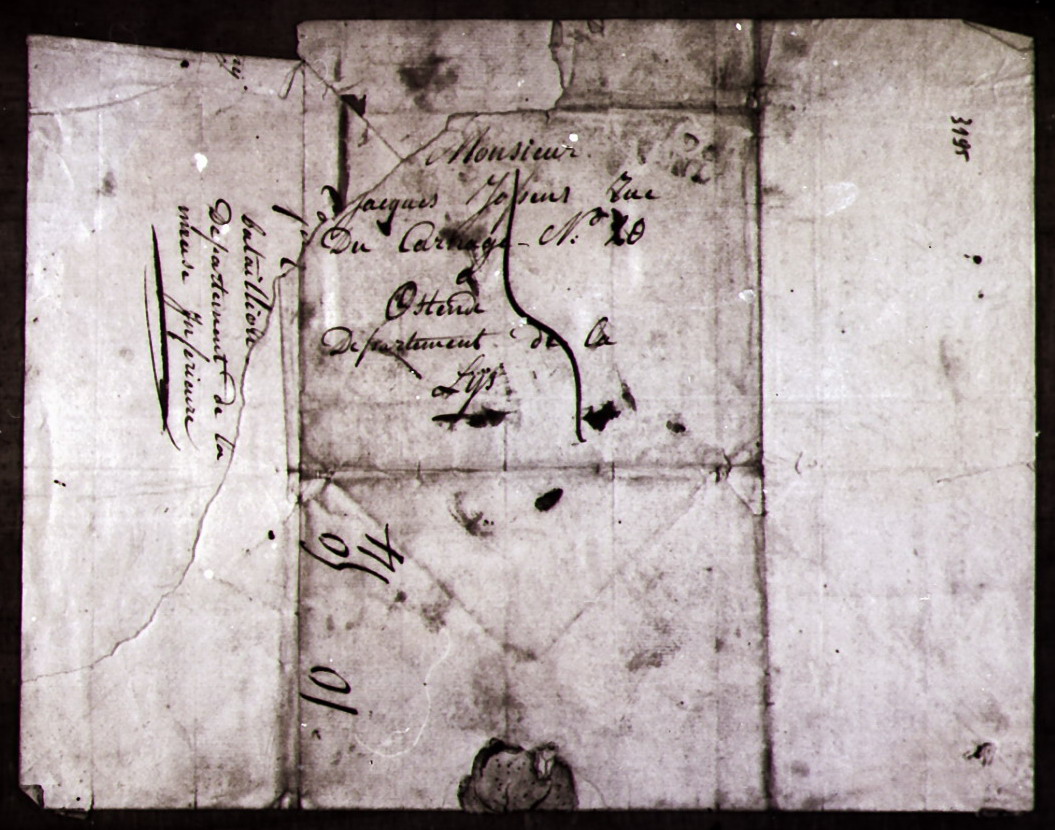 Monsieur
Jacques Jossens Rue
Du Carnage N.º 20
Ostend
Departement de la
Lijs
bataillion
Departement de la
meuse Inferieure
3195